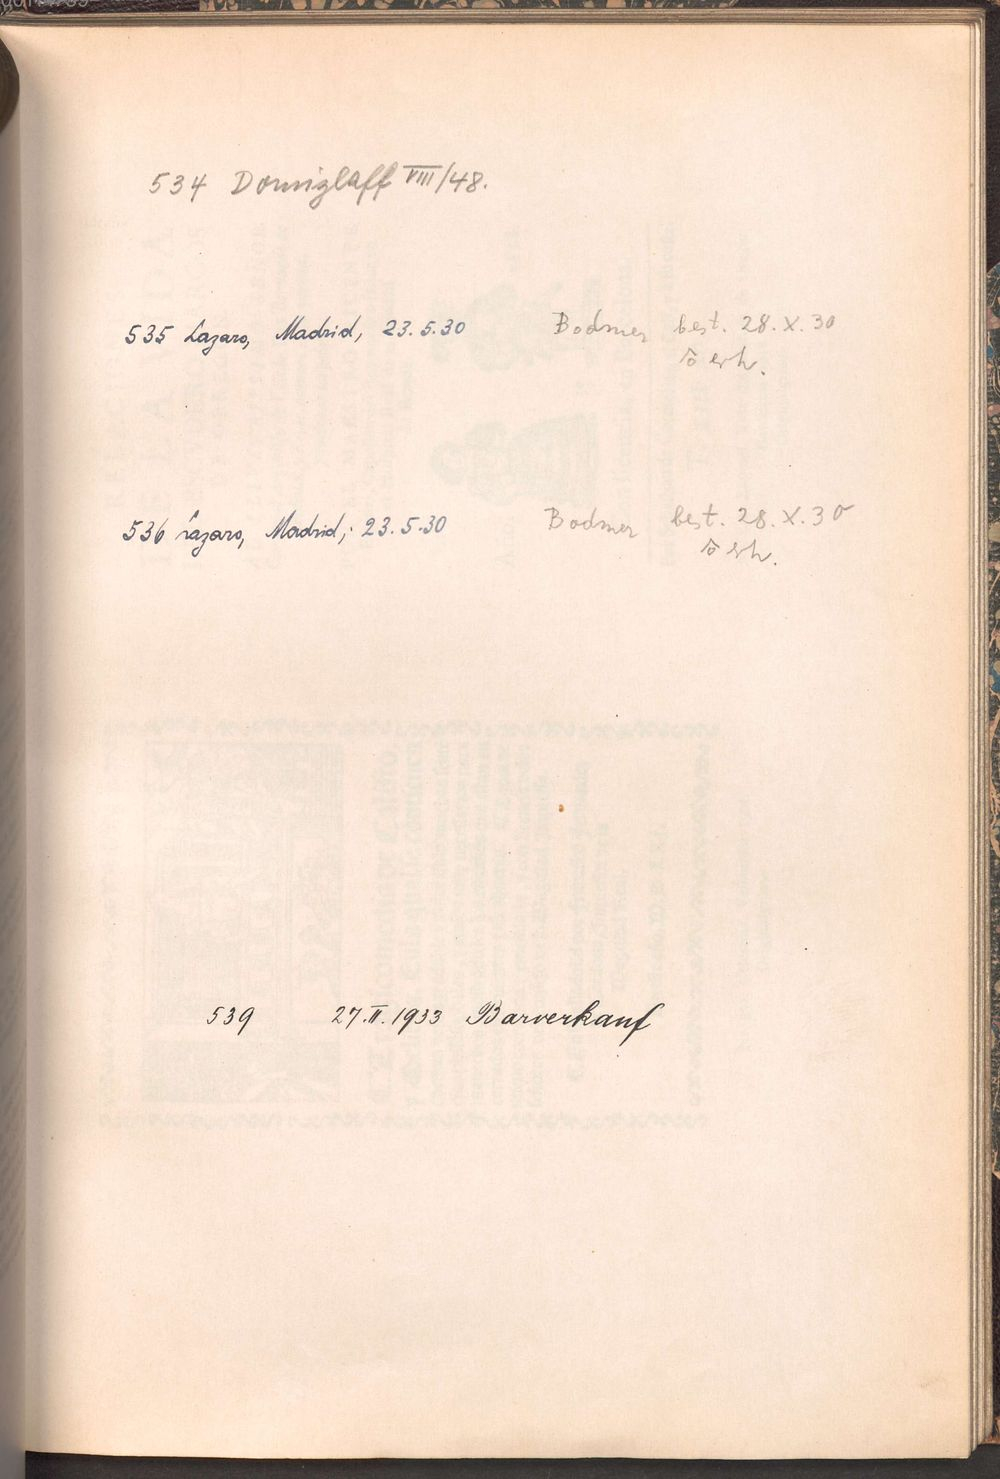 534 Domizlaff VIII/48.
535 Lazaro, Madrid, 23.5.30 Bodmer best. 28.X.30
erh.
536 Lazaro, Madrid, 23.5.30 Bodmer best. 28.X.30
erh.
539 27.II.1933 Barverkauf